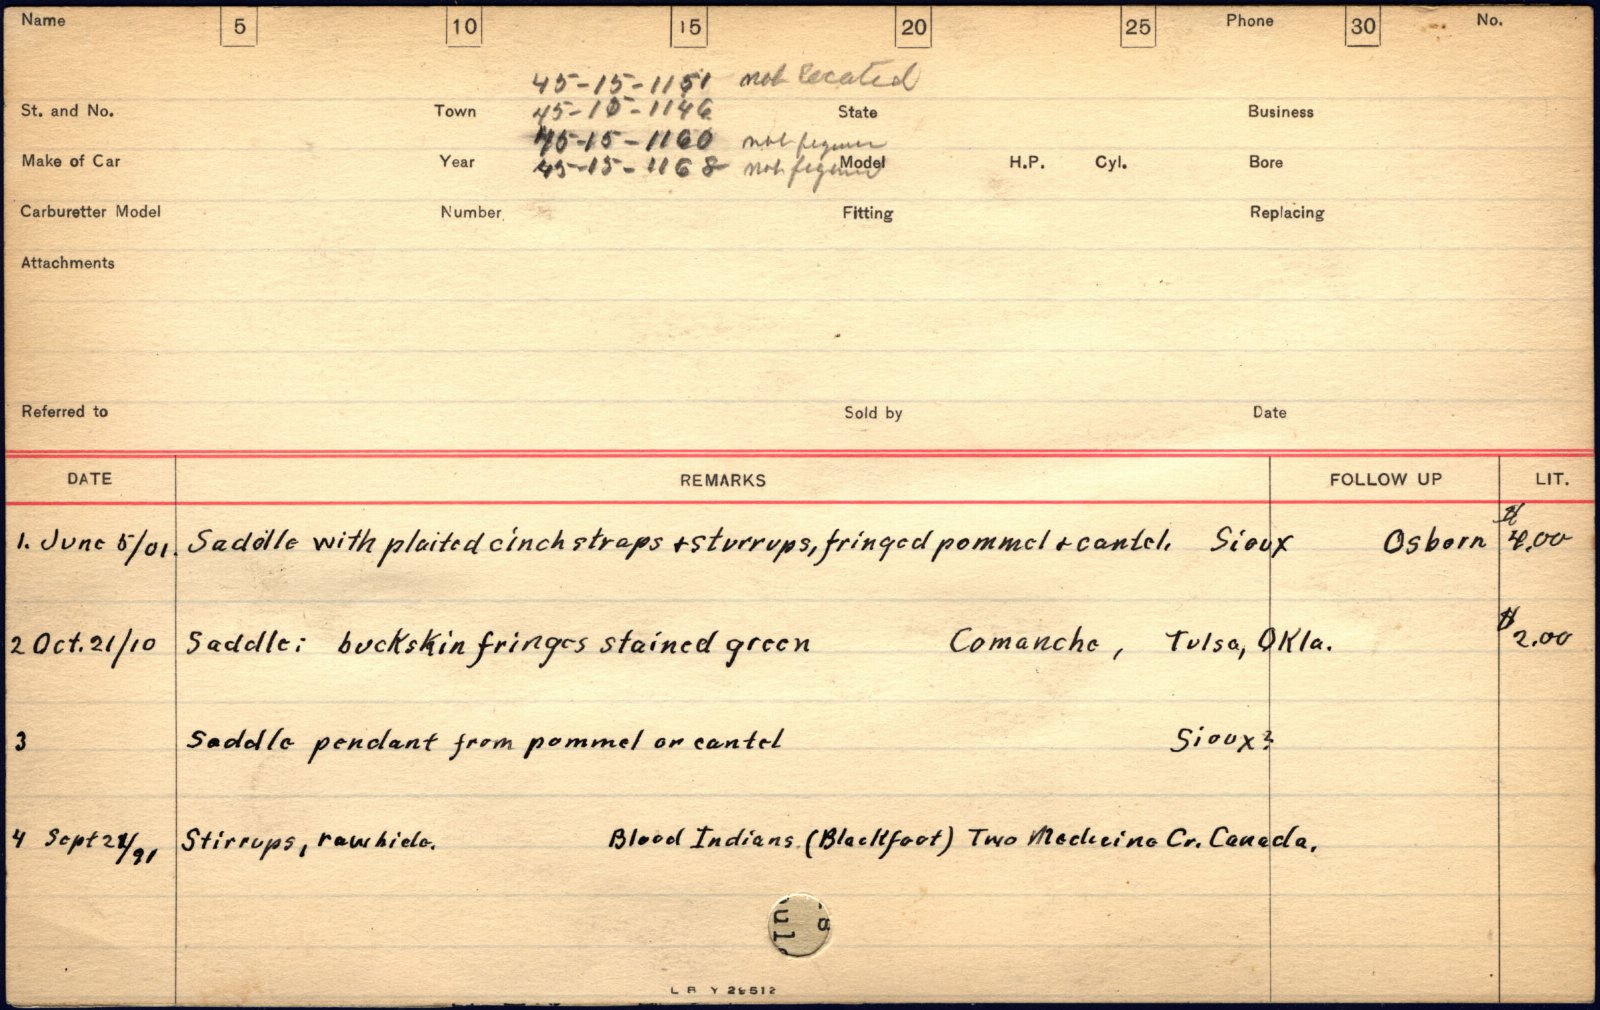 Name 5 10 15 20 25 Phone 30 No.
45-15-1151 not located
St. and No. Town 45-15-1146 State Business
45-15-1160 not
Make of Car Year 45-15-1168 not Model H.P. Cyl. Bore
Carburetter Model Number Fitting Replacing
Attachments
Referred to Sold by Date
DATE REMARKS FOLLOW UP LIT.
1. June 5/01. Saddle with plaited cinch straps + sturrups, fringed pommel + cantel. Sioux Osborn $4.00
2 Oct. 21/10 Saddle: buckskin fringes stained green Comanche, Tulsa, Okla. $2.00
3 Saddle pendant from pommel or cantel Sioux?
4 Sept /91 Stirrups, rawhide. Blood Indians. (Blackfoot) Two Medicine Cr. Canada.
L B Y 26512